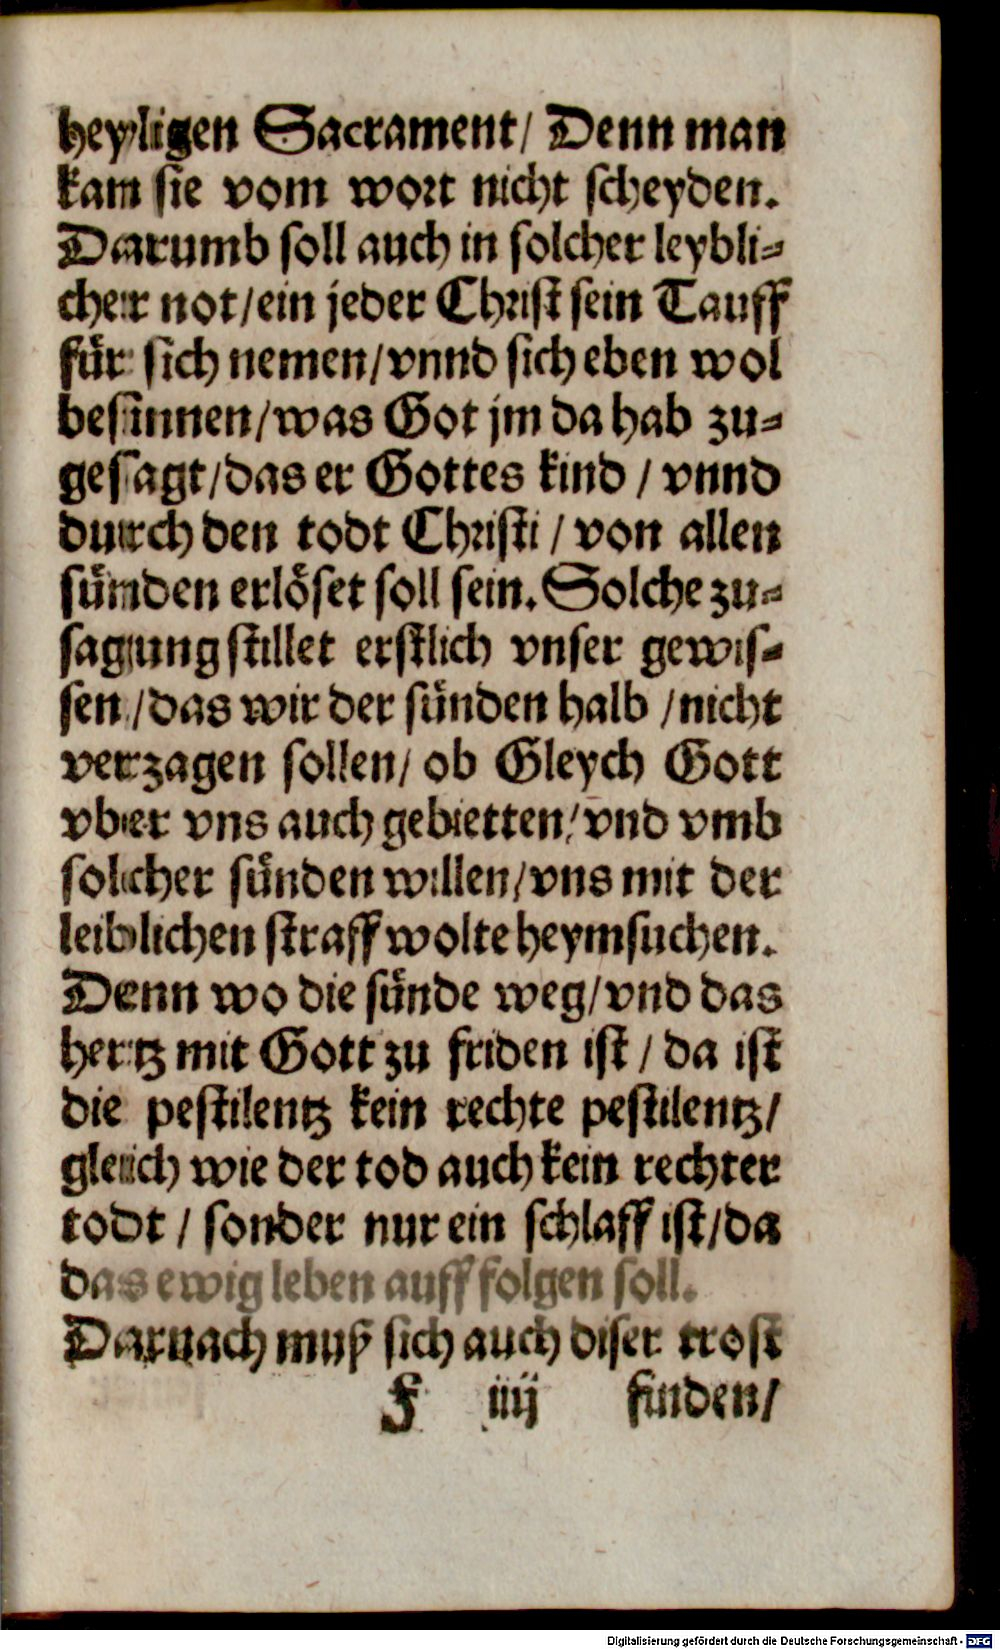 heyligen Sacrament/ Denn man
kan sie vom wort nicht scheyden.
Darumb soll auch in solcher leybli⸗
cher not/ein jeder Christ sein Tauff
für sich nemen/vnnd sich eben wol
besinnen/was Got jm da hab zu⸗
gesagt/das er Gottes kind / vnnd
durch den todt Christi / von allen
sünden erlöset soll sein. Solche zu⸗
sagung stillet erstlich vnser gewis⸗
sen /das wir der sünden halb /nicht
verzagen sollen/ ob Gleych Gott
vber vns auch gebietten/ vnd vmb
solicher sünden willen/vns mit der
leiblichen straff wolte heymsuchen.
Denn wo die sünde weg/vnd das
hertz mit Gott zu friden ist / da ist
die pestilentz kein rechte pestilentz/
gleich wie der tod auch kein rechter
todt / sonder nur ein schlaff ist/da
das ewig leben auff folgen soll.
Darnach muß sich auch diser trost
F iiij finden/
Digitalisierung gefördert durch die Deutsche Forschungsgemeinschaft - DFG